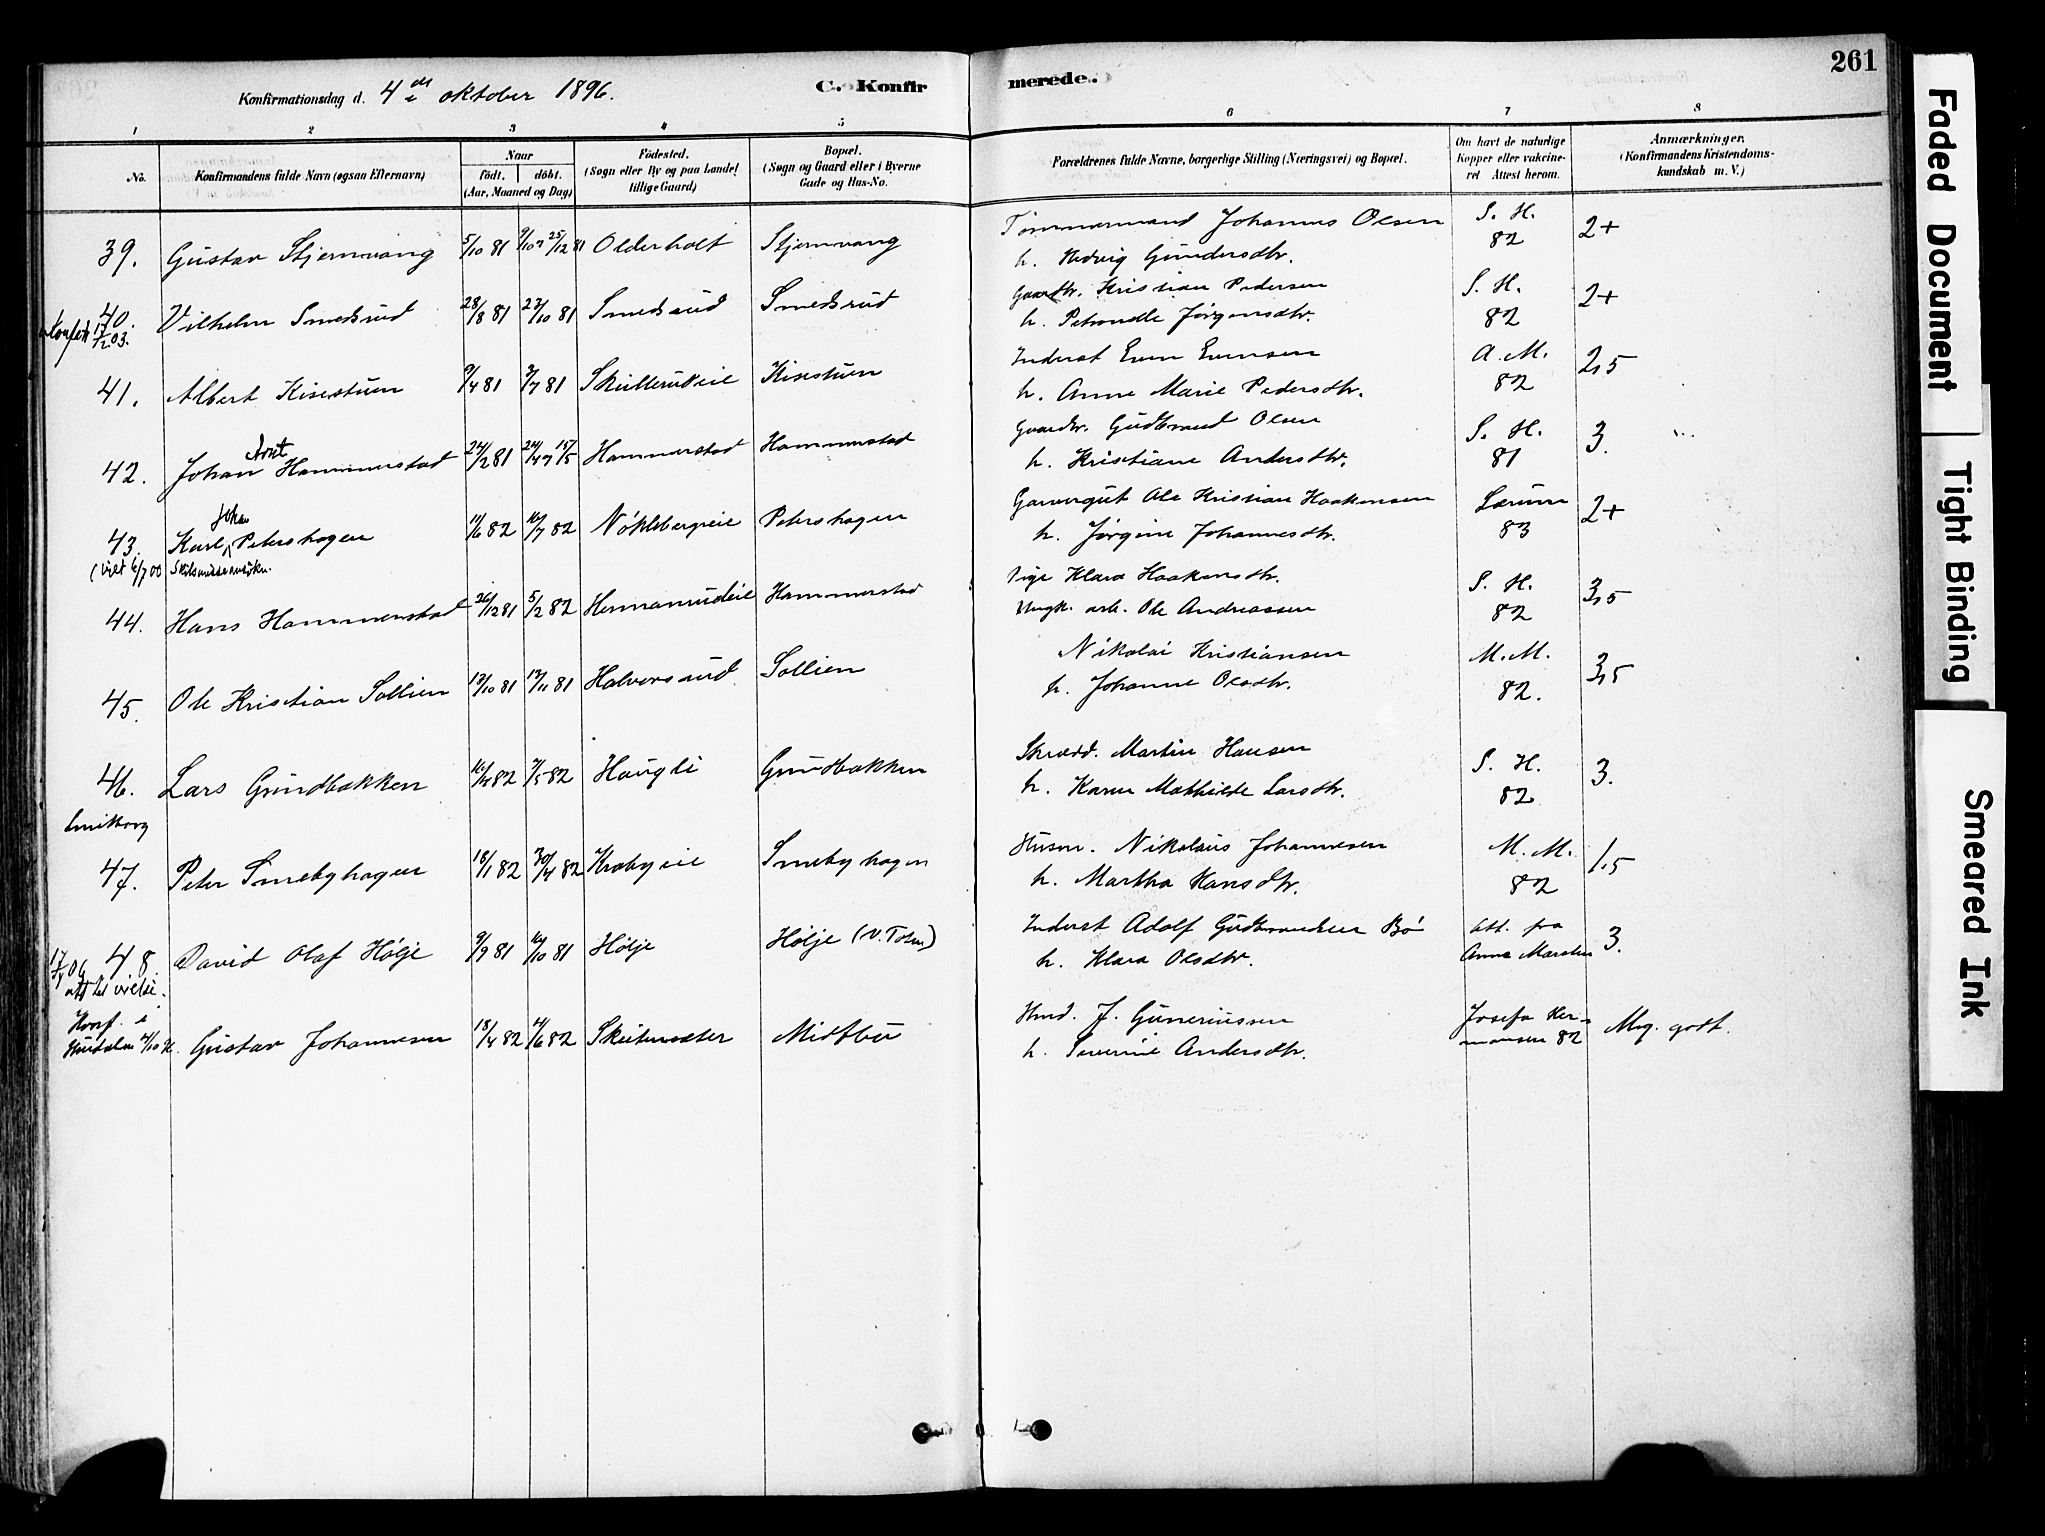 261
Konfirmationsdag d. 4de oktober 1896.
C. Konfirmerede.
1 2 3 4 5 6 7 8
No.
Konfirmandens fulde Navn (ogsaa Efternavn)
Naar
födt. döbt.
(Aar, Maaned og Dag)
Födested.
(Sogn eller By og paa Landet
tillige Gaard)
Bopæl.
(Sogn og Gaard eller i Byerne
Gade og Hus-No.
Forældrenes fulde Navne, borgerlige Stilling (Næringsvei) og Bopæl.
Om havt de naturlige
Kopper eller vakcine-
ret Attest herom.
Anmærkninger.
(Konfirmandens Kristendoms-
kundskab m. V.)
39. Gustav Stjernvang 5/10 81 9/10 25/12 81 Olderholt Stjernvang Tømmermand Johannes Olsen S. H. 2+
h. Hedvig Gundersdtr. 82
40. Vilhelm Smedsrud 28/8 81 23/10 81 Smedsrud Smedsrud Gaardbr. Kristian Pedersen S. H. 2+
h. Petronelle Jørgensdtr. 82
41. Albert Kisestuen 9/4 81 3/7 81 Skullerudeie Kisestuen Inderst Even Evensen A. M. 2,5
h. Anne Marie Pedersdtr. 82
42. Johan Arnt Hammerstad 24/2 81 24/4 15/5 Hammerstad Hammerstad Gaardbr. Gudbrand Olsen S. H. 3.
h. Kristiane Andersdtr. 81
43. Karl Johan Petershagen 11/6 82 16/7 82 Nøklebergeie Petershagen Garvergut Ole Kristian Haakensen Lærum 2+
(viet 6/7 00 h. Jørgine Johannesdtr. 83
44. Hans Hammerstad 26/12 81 5/2 82 Hermanrudeie Hammerstad Pige Klara Haakensdtr. S. H. 3,5
Ungk. arb. Ole Andreassen 82
45. Ole Kristian Sollien 13/10 81 13/11 81 Halvorsrud Sollien Nikolai Kristiansen M. M. 3,5
h. Johanne Olsdtr. 82.
46. Lars Grundbakken 16/4 82 7/5 82 Haugli Grundbakken Skrædd. Martin Hansen S. H. 3.
h. Karen Mathilde Larsdtr. 82
47. Peter Smebyhagen 18/1 82 30/4 82 Krabyeie Smebyhagen Husm. Nikolaus Johannesen M. M. 1,5
h. Martha Hansdtr. 82
48. David Olaf Hølje 9/9 81 16/10 81 Hølje Hølje (V. Toten) Inderst Adolf Gudbrandsen Bø att. fra 3.
att. til vielse. h. Klara Olsdtr. Anna Marsteen
Konf. i
Hurdalen 4/10 96. Gustav Johannesen 18/4 82 11/6 82 Skuterudsæter Midtbu Hmd. J. Guneriussen Josefa Her- Meg. godt.
h. Severine Andersdtr. mansen 82
Faded Document
Tight Binding
Smeared Ink